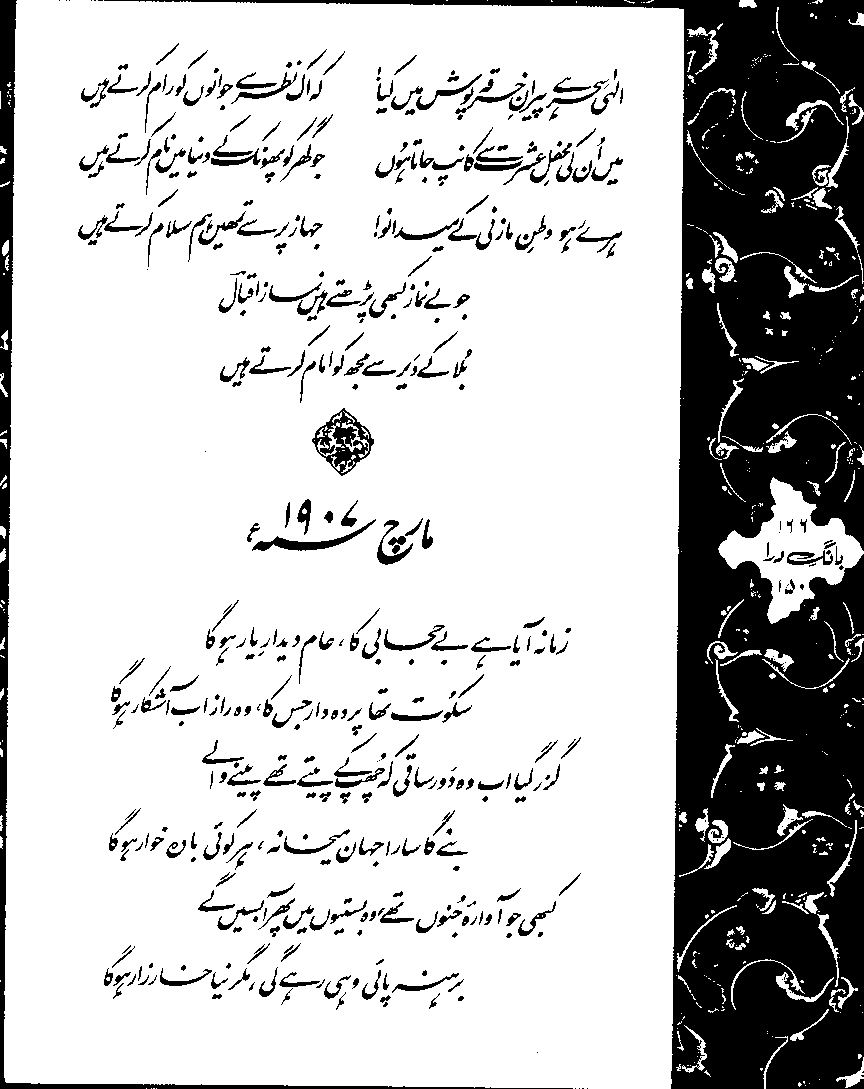 الٰہی سحر ہے پیرانِ خرقہ پوش میں کیا! کہ اک نظر سے جوانوں کو رام کرتے ہیں
میں اُن کی محفلِ عشرت سے کانپ جاتا ہُوں جو گھر کو پھُونک کے دنیا میں نام کرتے ہیں
ہرے رہو وطنِ مازنی کے میدانو! جہاز پر سے تمھیں ہم سلام کرتے ہیں
جو بے نماز کبھی پڑھتے ہیں نماز اقبالؔ
بُلا کے دَیر سے مجھ کو امام کرتے ہیں
مارچ ۱۹۰۷ء
زمانہ آیا ہے بے حجابی کا، عام دیدارِ یار ہو گا
سکُوت تھا پردہ دار جس کا، وہ راز اب آشکار ہو گا
گزر گیا اب وہ دَورِ ساقی کہ چھُپ کے پیتے تھے پینے والے
بنے گا سارا جہان میخانہ، ہر کوئی بادہ خوار ہو گا
کبھی جو آوارۂ جُنوں تھے، وہ بستیوں میں پھر آ بسیں گے
برہنہ پائی وہی رہے گی، مگر نیا خارزار ہو گا
۱۶۶
بانگِ درا
۱۵۰